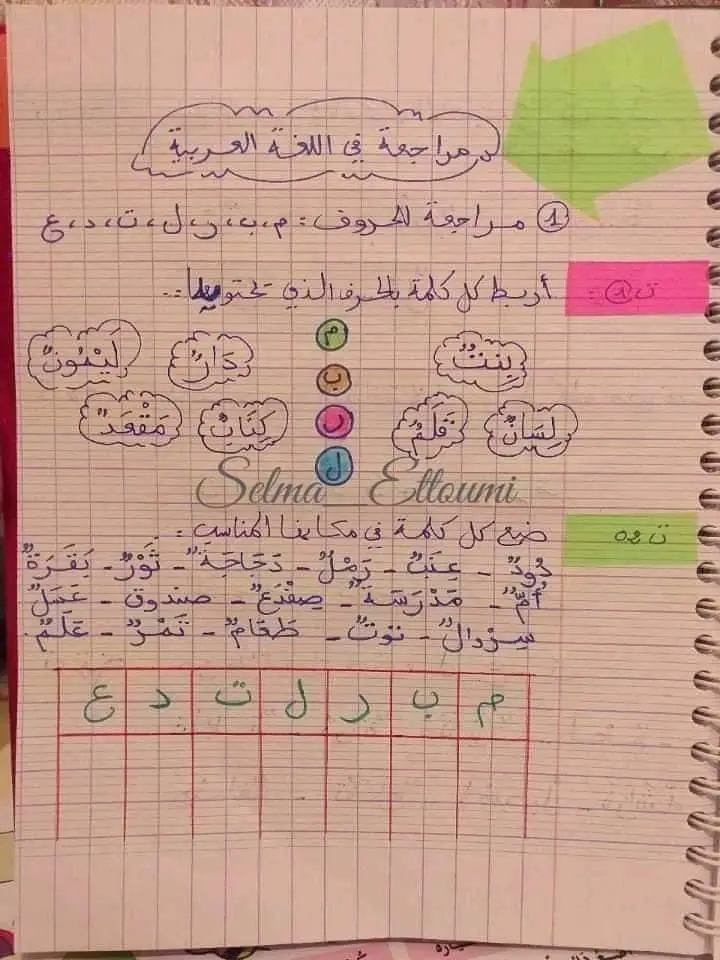 مراجعة في اللغة العربية
① مراجعة الحروف: م، ب، ر، ل، ت، د، ع
ت①: أربط كل كلمة بالحرف الذي تحتويه:
م
لَيْمُونٌ دَارٌ بِنْتٌ
ب
مَقْعَدٌ كِتَابٌ ر قَلَمٌ لِسَانٌ
ل
Selma_Ettoumi
ت02 ضع كل كلمة في مكانها المناسب:
دُودٌ - عِنَبٌ - رَمْلٌ - دَجَاجَةٌ - ثَوْرٌ - بَقَرَةٌ
أُمٌّ - مَدْرَسَةٌ - ضِفْدَعٌ - صندوق - عَسَلٌ
سِرْوَالٌ - تُوتٌ - طَعَامٌ - تَمْرٌ - عَلَمٌ.
م ب ر ل ت د ع